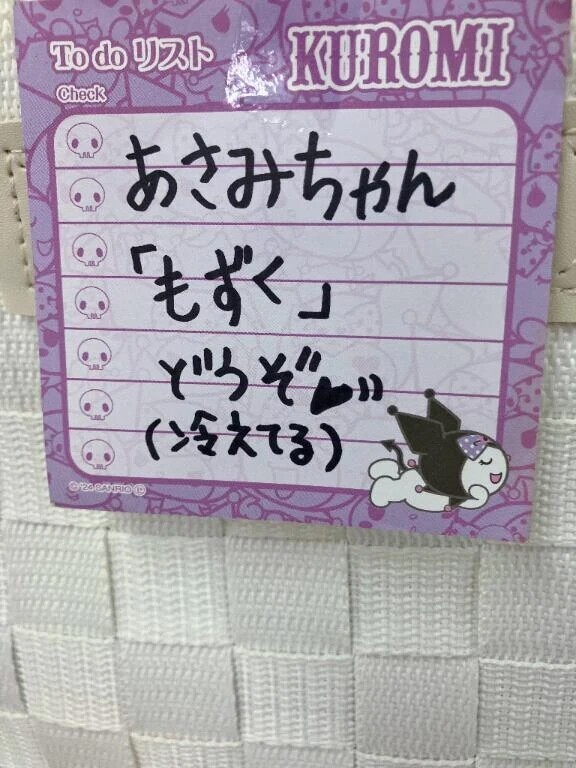 To do リスト
KUROMI
Check
あさみちゃん
「もずく」
どうぞ♥
(冷えてる)
© '24 SANRIO Ⓛ